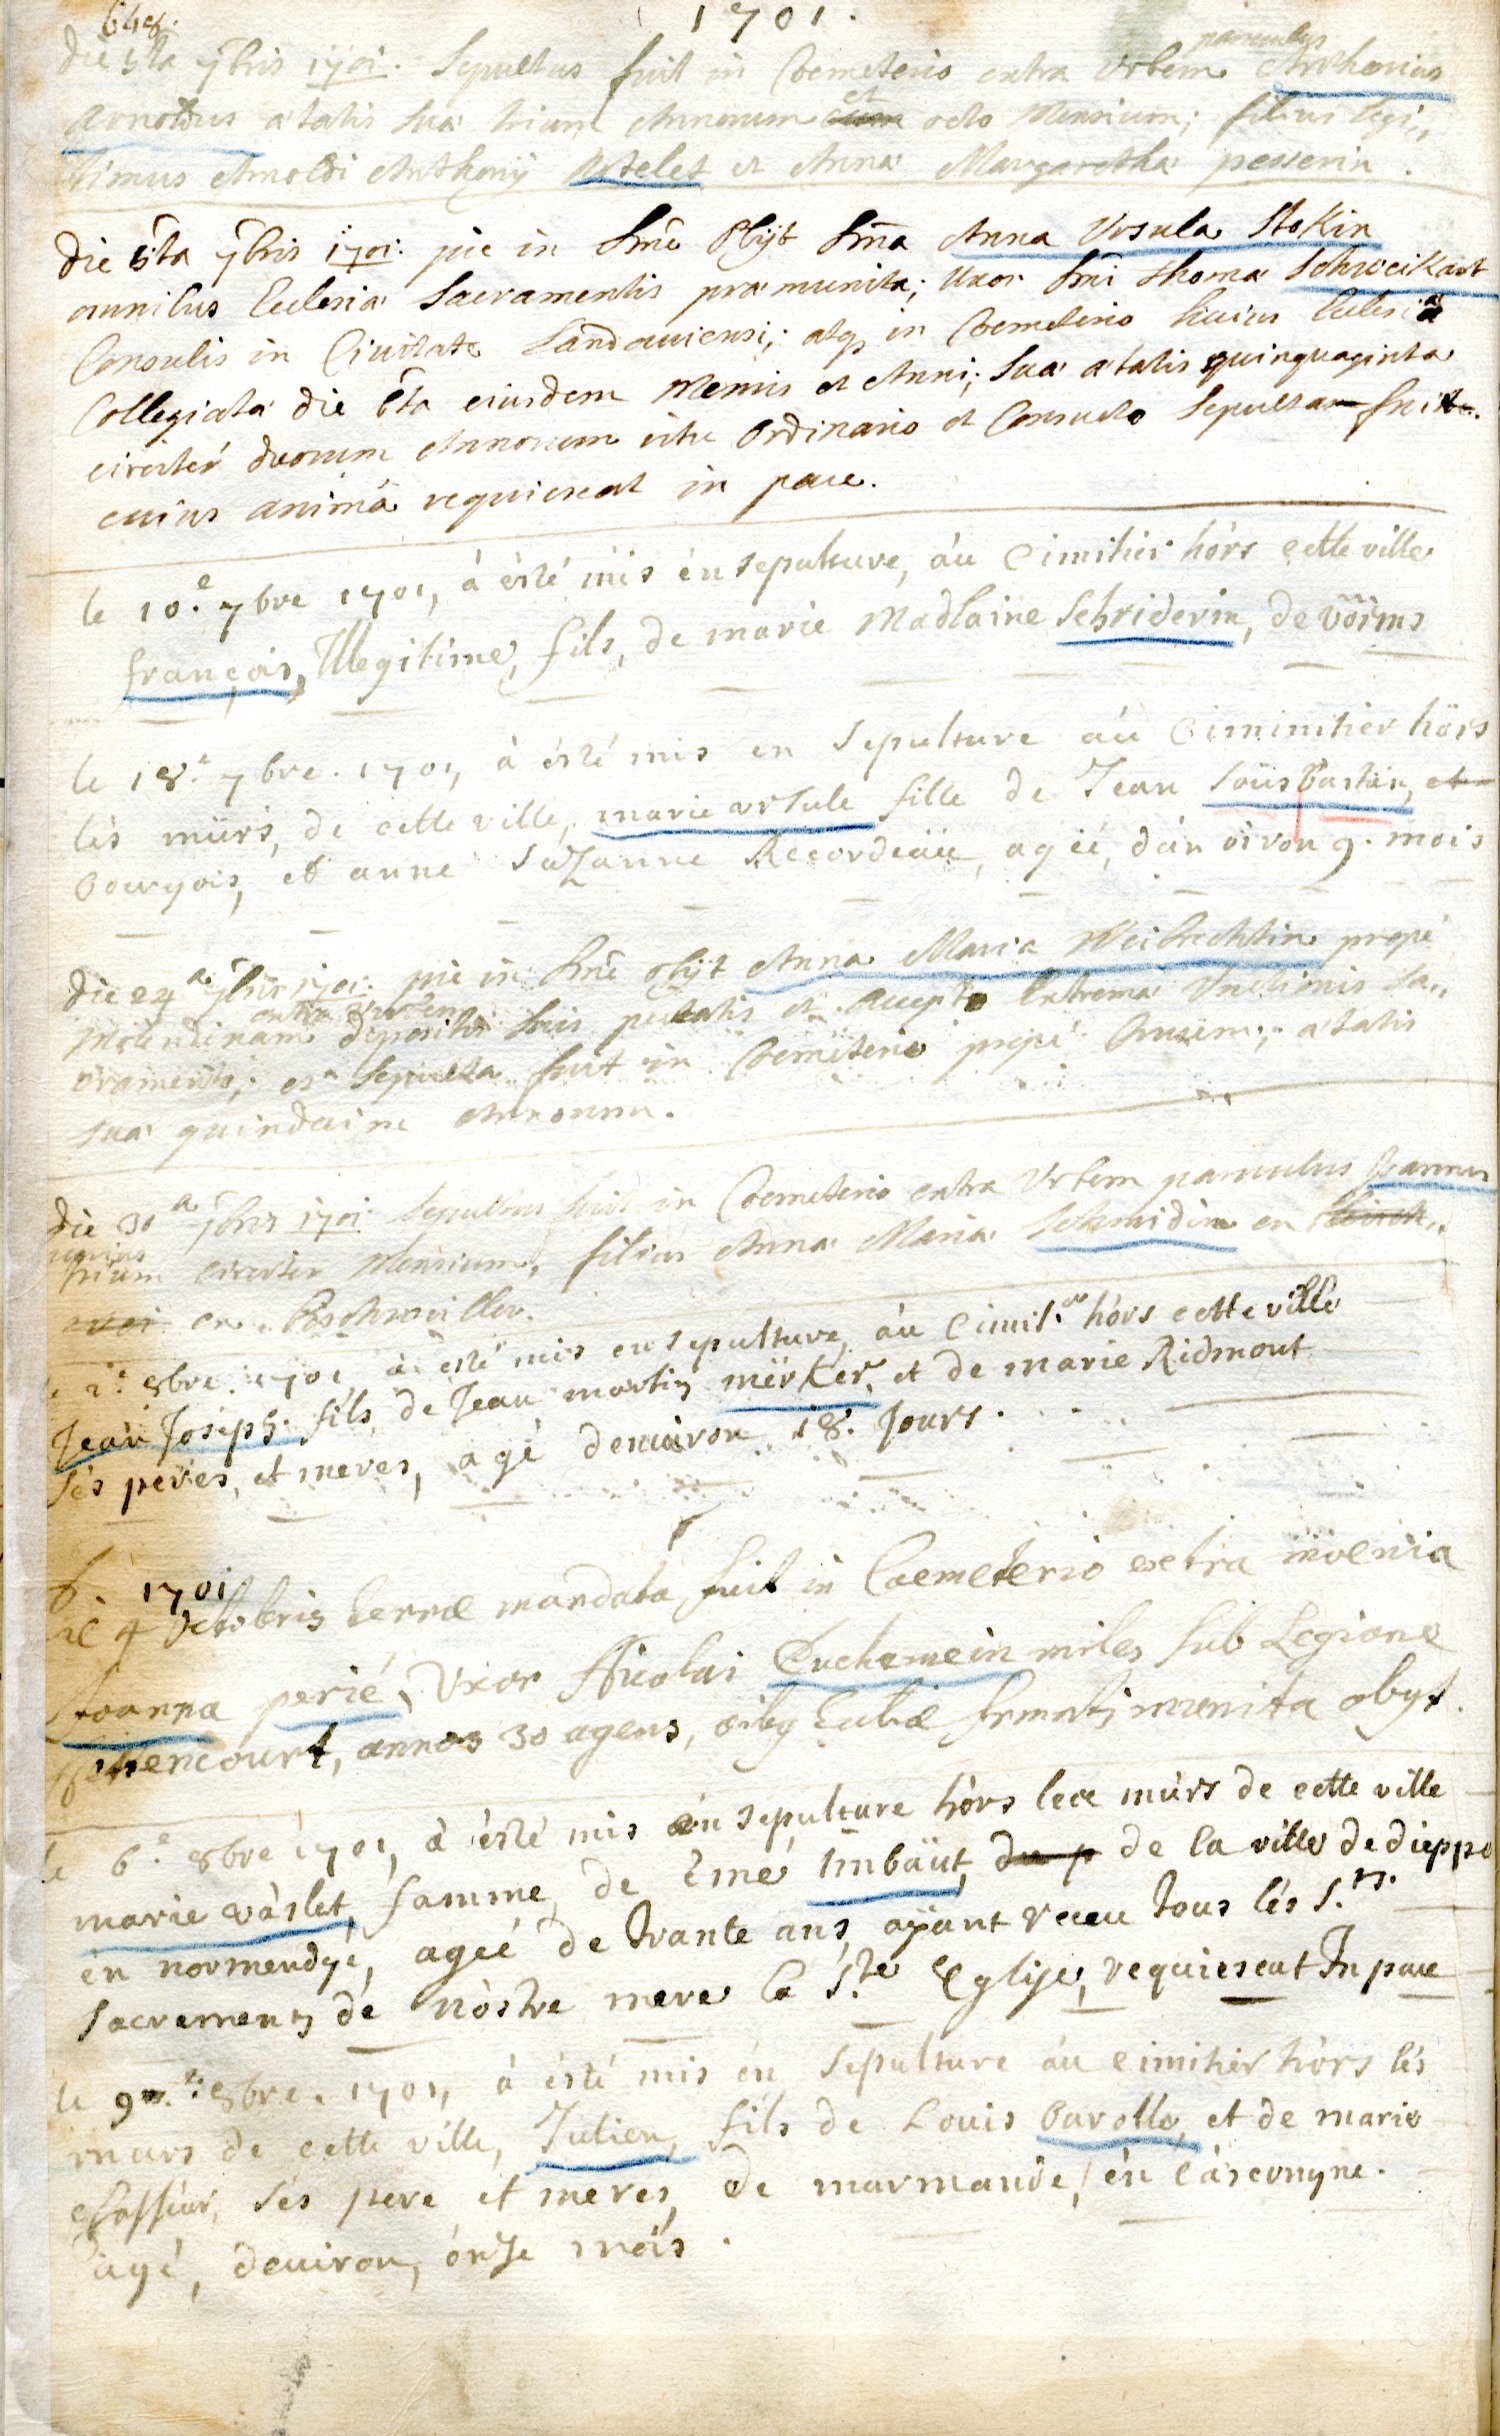 648.
1701.
die 5ta 7bris 1701. Sepultus fuit in Coemeterio extra Urbem parvulus Anthonius
Arnoldus ætatis suæ trium Annorum et octo Mensium; filius legi„
timus Arnoldi Anthonÿ et Anna Margaretha
die 5ta 7bris 1701: pie in Dnō Obÿt Dna Anna Vrsula Stokin
omnibus Ecclesiæ Sacramentis præmunita; Uxor Dni Thomæ Schweikart
Consulis in Civitate Landaviensi; atq, in Coemeterio huius Ecclesiæ
Collegiatæ die 6ta eiusdem Mensis et Anni; Suæ ætatis quinquaginta
circiter duorum Annorum ritu Ordinario et Consueto Sepulta fuit.
cuius anima requiescat in pace.
le 10.e 7bre 1701, à èsté mis èn sepulture, àu Cimitièr hòrs cette ville
françois, Illegitime, fils, de marie Madlaine Schriderin, de vörms
le 18.e 7bre. 1701, à ésté mis en Sepulture áu Ciminitier hörs
lès mürs, de cette ville, marie ursule fille de Jean Löüs bastian, et
Bourgois, et anne Suzanne Recordeäu, agéé, dàn viron 9. mois
die 24a 7bris 1701: pie in Dnō obÿt Anna Maria Weibrechtin propé
molendinam extra urbem depositis suis peccatis et accepto Extremæ Unctionis Sa„
cramento; et Sepulta fuit in Coemiterio propé Crucem; ætatis
suæ quindecim Annorum.
die 30a 7bris 1701 Sepultus fuit in Coemeterio extra Urbem parvulus Joannes
unius circiter Mensium, filius Anna Maria Schmidin en
en
le 2.e 8bre. 1701 à esté mis en sepulture, àu Cimit.re hòrs cette ville
Jean Joseph. fils, de Jean martin mërker, et de marie Ridmont
sès perès, et meres, agé denuiron 18. Jours.
1701
4 Octobris terræ mandata fuit in Cæmeterio extra mœnia
Joanna perié, Uxor Nicolai Duchemein miles Sub Legione
Bethencourt, annos 30 agens, munita obyt.
le 6.e 8bre 1701, à èsté mis èn sepulture hòrs lece mùrs de cette ville
marie vàslet, famme, de Emé Imbäut, du p de la ville de dieppe
èn normendyé, ageé de trante ans, aÿant receu tous lés S.ts.
sacrements de nòstre mere la S.te Eglise, requiescat In pace
le 9.e 8bre. 1701, à ésté mis én sepulture áu cimitiér hòrs lés
murs de cette ville, Julien, fils de Louis Barolle, et de marie
Chassiur, sés pere et meres, de marmande, èn Càscongne.
agé, deuiron, ónze möis.